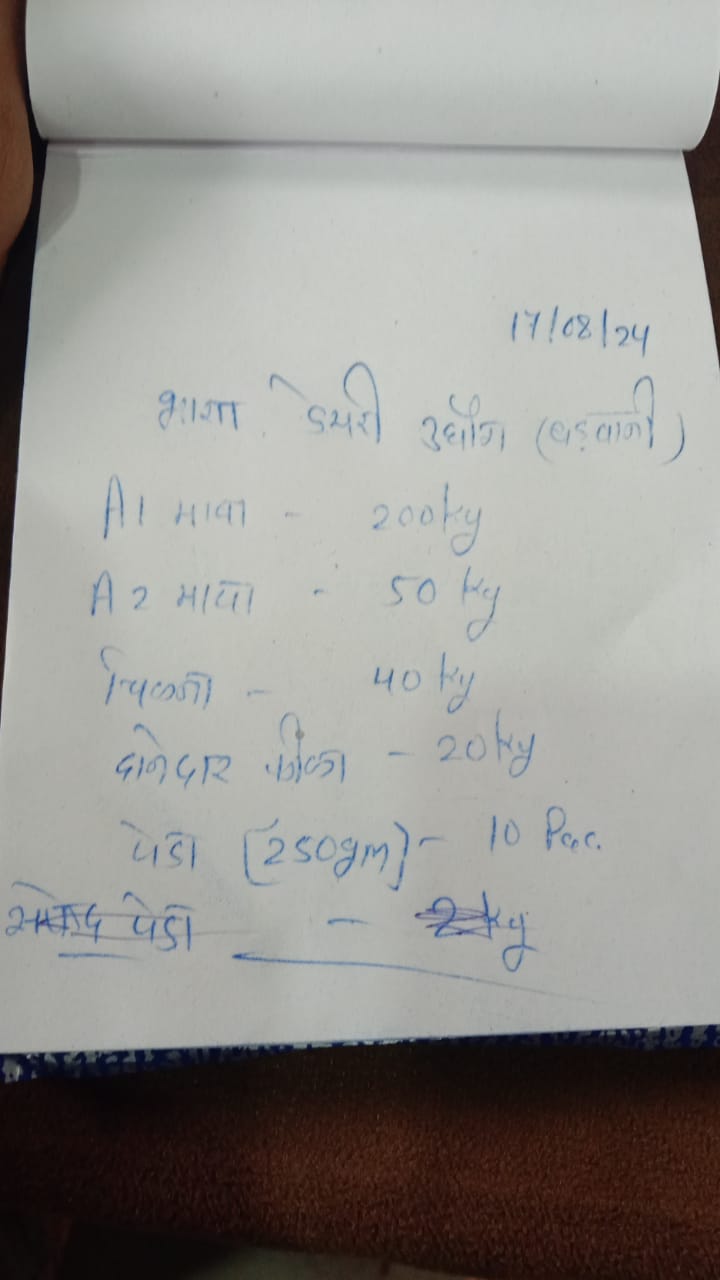 17/08/24
डेयरी उद्योग (बड़वानी)
A1 मावा - 200kg
A2 मावा - 50 kg
चिकना - 40 kg
दानेदार फीका - 20 kg
पेडा [250gm] - 10 Pac.
पेडा - 2kg